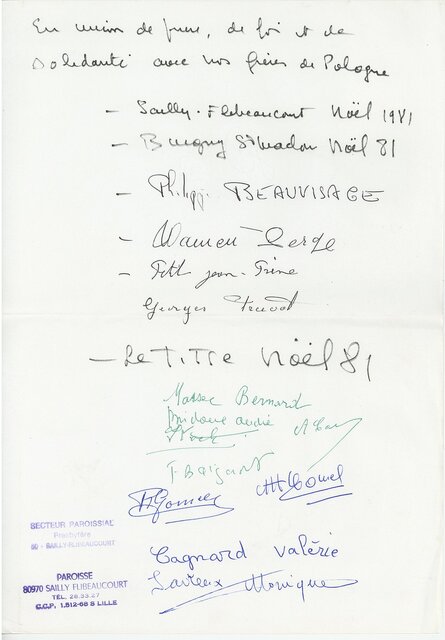 En union de prière, de foi et de
solidarité avec nos frères de Pologne
- Sailly-Flibeaucourt Noël 1981
- Buigny St Maclou Noël 81
- Philippe BEAUVISAGE
- Wamen Serge
- Petit jean-Pierre
Georges
- Le TiTre Noël 81
Massec Bernard
andré
Cagnard Valérie
Monique
SECTEUR PAROISSIAL
Presbytère
80 - SAILLY-FLIBEAUCOURT
PAROISSE
80970 SAILLY FLIBEAUCOURT
TÉL. 28.33.27
C.C.P. 1.512-68 S LILLE